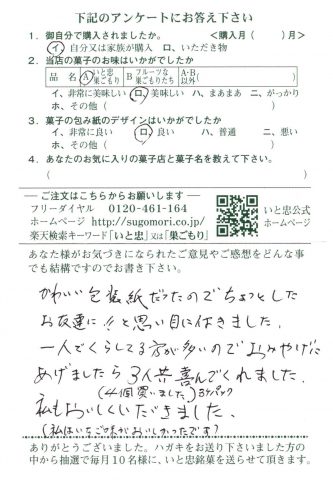 下記のアンケートにお答え下さい
1．御自分で購入されましたか。 ＜購入月（　　）月＞
イ、自分又は家族が購入　ロ、いただき物
2．当店の菓子のお味はいかがでしたか
品 名 A いと忠巣ごもり B フルーツな巣ごもりたち A・B以外（　　　）
イ、非常に美味しい　ロ、美味しい　ハ、まあまあ　ニ、がっかり
ホ、その他（　　　）
3．菓子の包み紙のデザインはいかがでしたか
イ、非常に良い　ロ、良い　ハ、普通　ニ、悪い
ホ、その他（　　　）
4．あなたのお気に入りの菓子店と菓子名を教えて下さい。
（　　　）
ご注文はこちらからお願いします
フリーダイヤル　0120-461-164
ホームページ　http://sugomori.co.jp/
楽天検索キーワード「いと忠」又は「巣ごもり」
いと忠公式
ホームページ
あなた様がお気づきになられたご意見やご感想をどんな事
でも結構ですのでお書き下さい。
かわいい包装紙だったのでちょっとした
お友達に!!と思い目に付きました。
一人でくらしてる方が多いのでおみやげに
あげましたら3人共喜んでくれました。
(4個買いました)3ヶパック
私もおいしくいただきました。
(私はいちご味がおいしかったです?
ありがとうございました。ハガキをお送り下さいました方の
中から抽選で毎月10名様に、いと忠銘菓を送らせて頂きます。